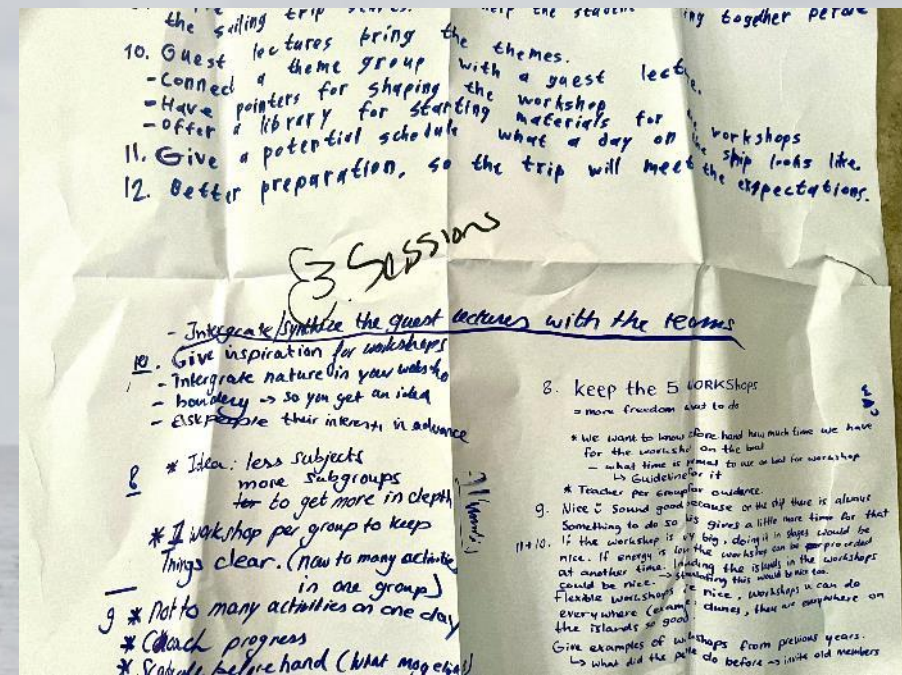 the sailing trip starts. help the student ing together before
10. Guest lectures bring the themes.
- Connect a theme group with a guest lecture.
- Have pointers for shaping the workshop
- Offer a library for starting materials for workshops
11. Give a potential schedule what a day on the ship looks like.
12. Better preparation, so the trip will meet the expectations.
3 Sessions
- Intergrate/synthize the guest lectures with the teams
10. Give inspiration for workshops
- Intergrate nature in your worksho
- boundery → so you get an idea
- Ask people their interests in advance
8 * Idea: less subjects
more subgroups
to get more in depth
* 1 workshop per group to keep
Things clear. (now to many activitie
in one group)
9 * Not to many activities on one day
* Coach progress
beforehand (what mog
8. keep the 5 WORKShops
= more freedom what to do
* We want to know before hand how much time we have
for the worksho on the boat
- what time is to use on boat for workshop
↳ Guideline for it
* Teacher per group for guidance.
9. Nice ü Sound good because on the ship there is always
Something to do so this gives a little more time for that
11+10. If the workshop is very big, doing it in stages would be
nice. If energy is low the workshop can be
at another time. Including the islands in the workshops
could be nice. → this would be nice too.
Flexible workshops are nice, workshops u can do
everywhere (example dunes, they are everywhere on
the islands so good.
Give examples of workshops from previous years.
↳ what did the people do before → invite old members